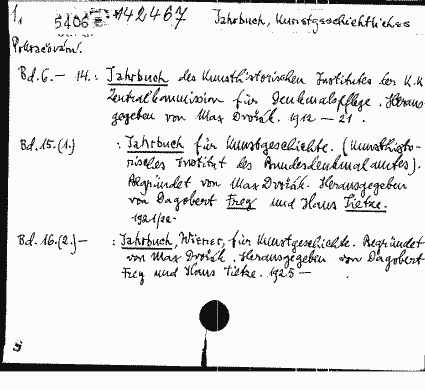 1. 5406 #142467 Jahrbuch, Kunstgeschichtliches
Pokračování.
Bd. 6.— 14. : Jahrbuch des Kunsthistorischen Institutes der K.K.
Zentralkommission für Denkmalspflege. Heraus-
gegeben von Max Dvořák. 1912 — 21.
Bd. 15. (1.) : Jahrbuch für Kunstgeschichte. (Kunsthisto-
risches Institut des Bundesdenkmalamtes).
Begründet von Max Dvořák. Herausgegeben
von Dagobert Frey und Hans Tietze.
1921/22.
Bd. 16. (2.) — : Jahrbuch, Wiener, für Kunstgeschichte. Begründet
von Max Dvořák. Herausgegeben von Dagobert
Frey und Hans Tietze. 1925 —